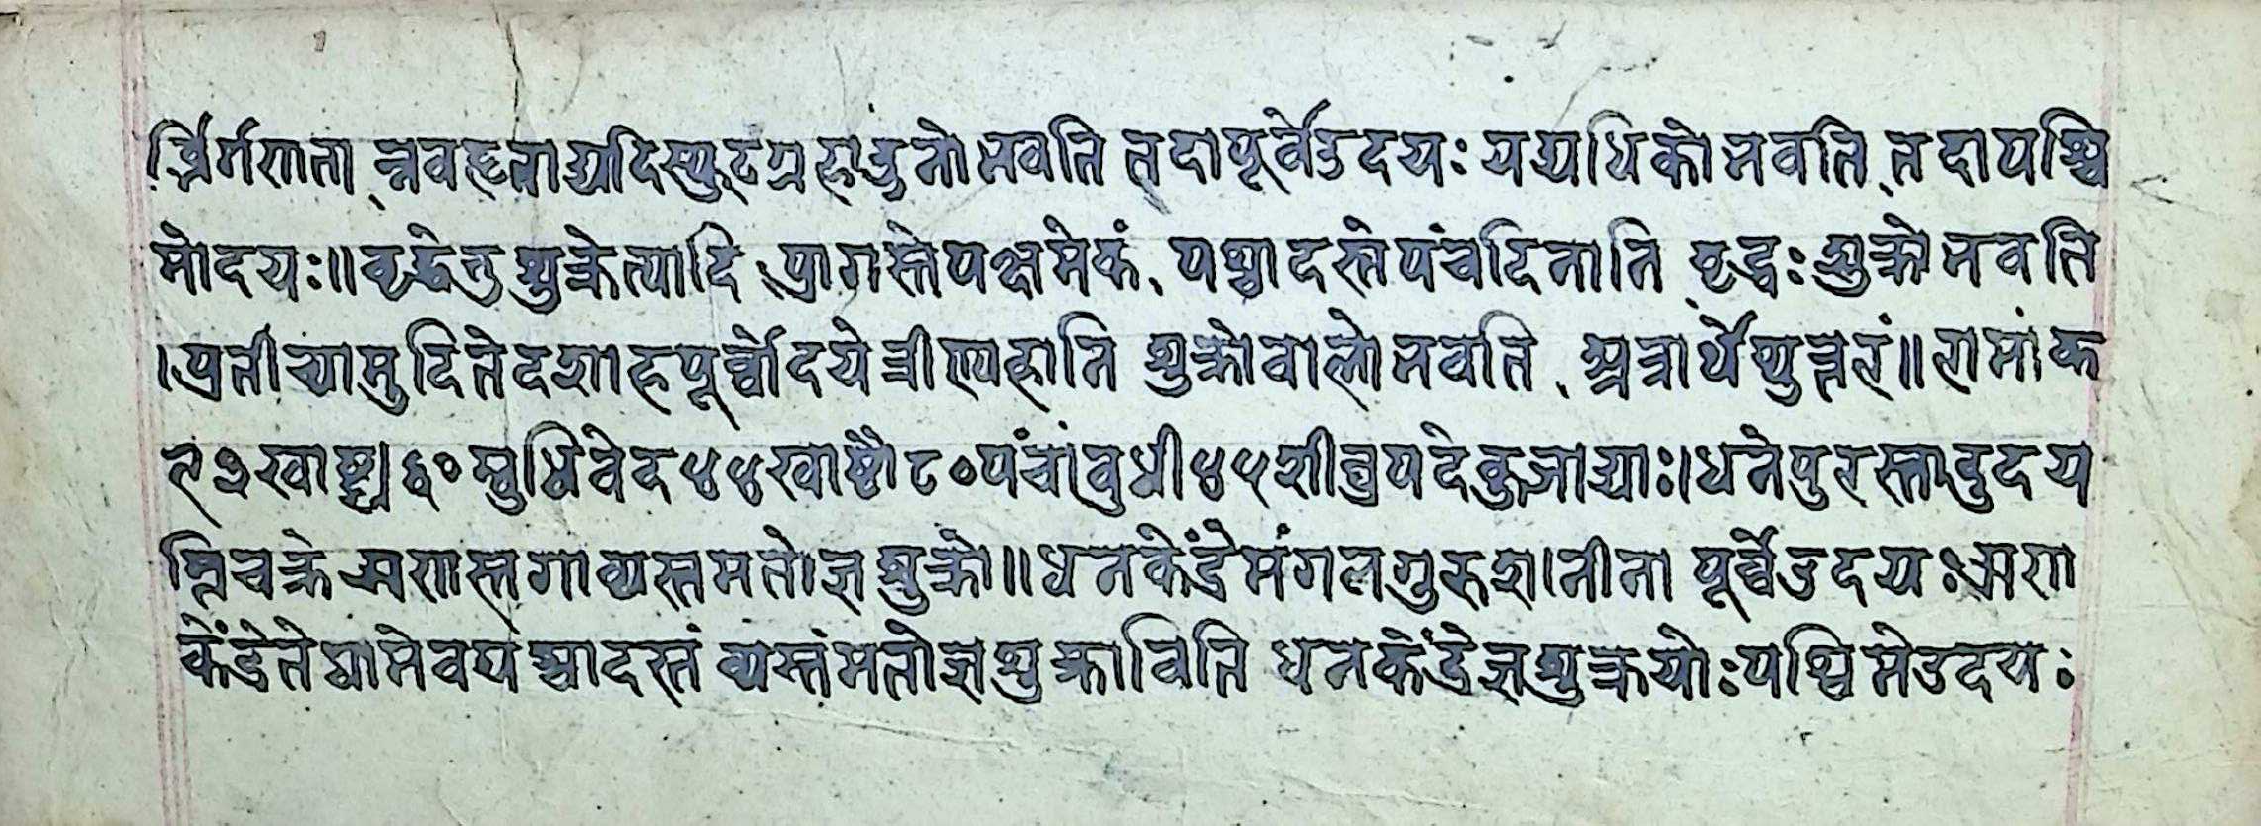 र्विर्गगाता न्नवहृताद्यदिस्फुटग्रहादूनो भवति तदापूर्वेउदयः यद्यधिको भवति तदापश्चि
मोदयः॥ वृद्धेतुशुक्रेत्यादि प्रागस्तेपक्षमेकं पश्चादस्तेपंचदिनानि वृद्धः शुक्रो भवति
।प्रतीच्यामुदितेदशाहपूर्व्वोदयेत्रीण्यहानि शुक्रोबालो भवति अत्रार्थे युन्नरं॥ रामांक
९३ खाष्ट ६० म्बुधिवेद ४४ खाष्टौ ८० पंचांबुधी ४५ शीघ्रपदेकुजाद्याः। धनेपुरस्तादुदय
न्निचक्रेऋणास्तगाव्यस्तमतोज्ञशुक्रो॥ धनकेंद्रेमंगलगुरुश।नीना पूर्व्वेउदयः ऋणा
केंद्रेतेषामेवपश्चादस्तं व्यस्तंमतोज्ञशुक्राविति धनकेंद्रेज्ञशुक्रयोः पश्चिमेउदयः